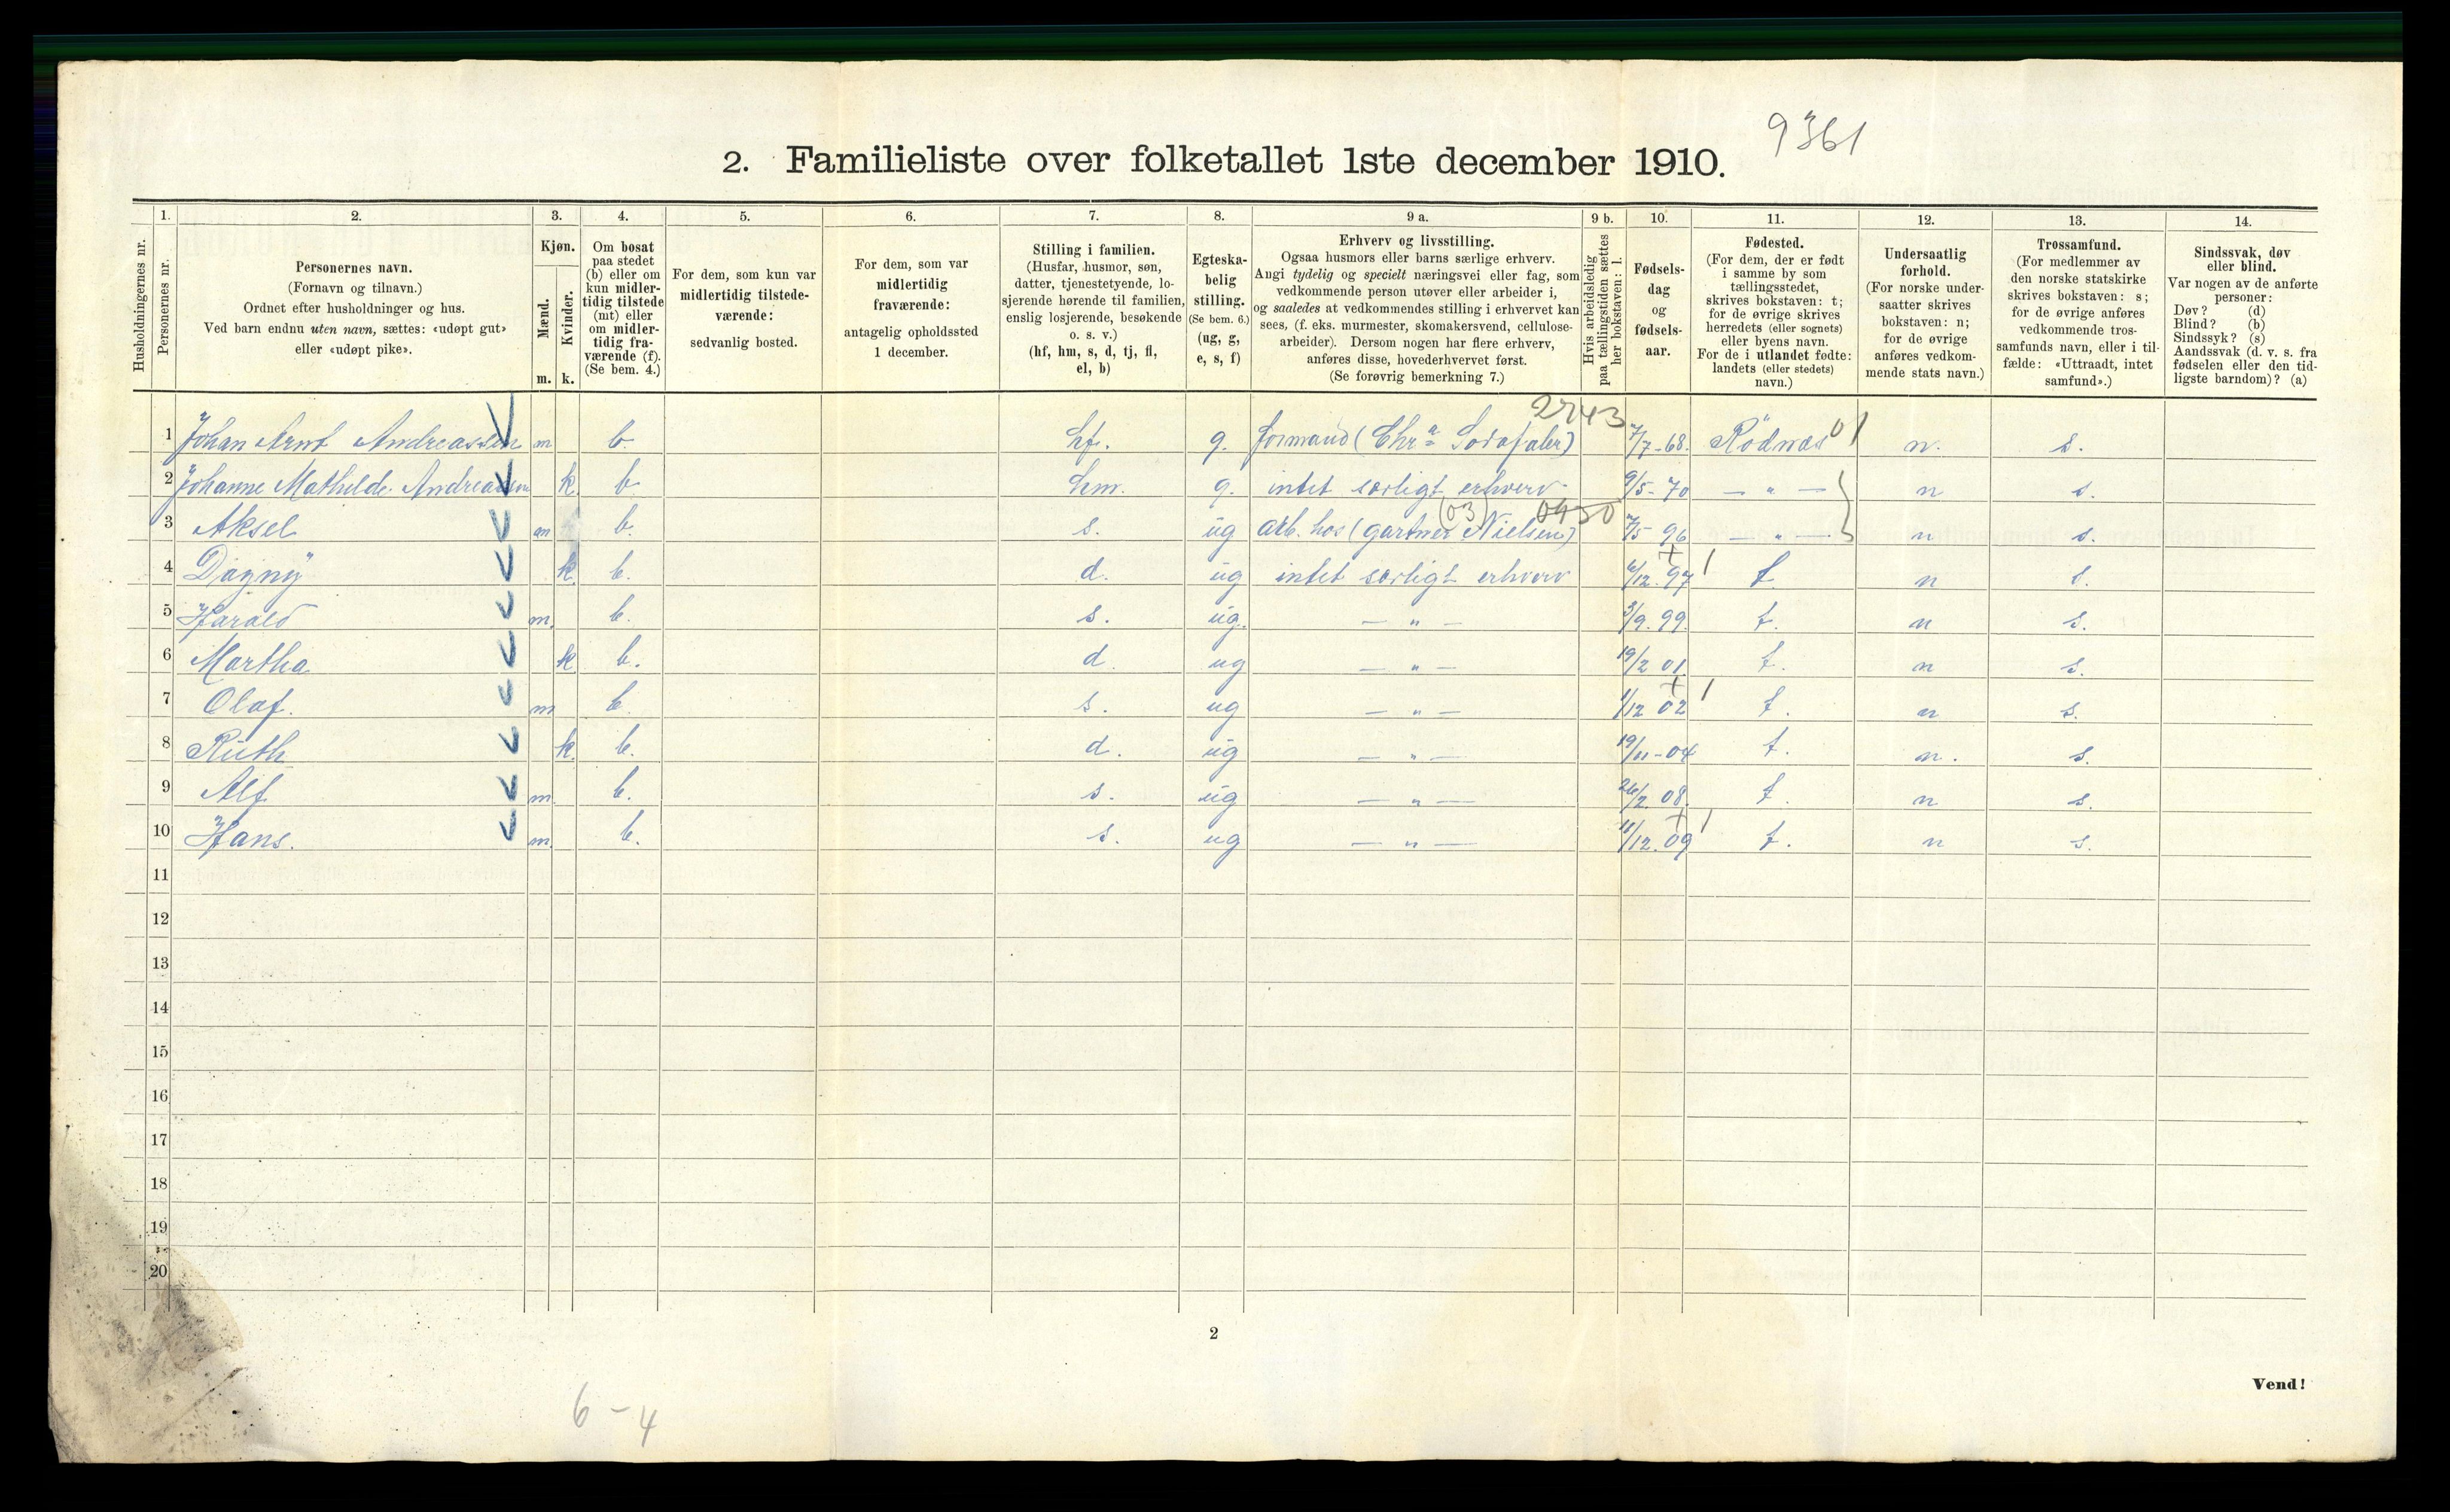 9361
2. Familieliste over folketallet 1ste december 1910.
Husholdningernes nr.
1.
Personernes nr.
2.
Personernes navn.
(Fornavn og tilnavn.)
Ordnet efter husholdninger og hus.
Ved barn endnu uten navn, sættes: «udøpt gut»
eller «udøpt pike».
3.
Kjøn.
Mænd.
Kvinder.
m. k.
4.
Om bosat
paa stedet
(b) eller om
kun midler-
tidig tilstede
(mt) eller
om midler-
tidig fra-
værende (f).
(Se bem. 4.)
5.
For dem, som kun var
midlertidig tilstede-
værende:
sedvanlig bosted.
6.
For dem, som var
midlertidig
fraværende:
antagelig opholdssted
1 december.
7.
Stilling i familien.
(Husfar, husmor, søn,
datter, tjenestetyende, lo-
sjerende hørende til familien,
enslig losjerende, besøkende
o. s. v.)
(hf, hm, s, d, tj, fl,
el, b)
8.
Egteska-
belig
stilling.
(Se bem. 6.)
(ug, g,
e, s, f)
9 a.
Erhverv og livsstilling.
Ogsaa husmors eller barns særlige erhverv.
Angi tydelig og specielt næringsvei eller fag, som
vedkommende person utøver eller arbeider i,
og saaledes at vedkommendes stilling i erhvervet kan
sees, (f. eks. murmester, skomakersvend, cellulose-
arbeider). Dersom nogen har flere erhverv,
anføres disse, hovederhvervet først.
(Se forøvrig bemerkning 7.)
9 b.
Hvis arbeidsledig
paa tællingstiden sættes
her bokstaven: l.
10.
Fødsels-
dag
og
fødsels-
aar.
11.
Fødested.
(For dem, der er født
i samme by som
tællingsstedet,
skrives bokstaven: t;
for de øvrige skrives
herredets (eller sognets)
eller byens navn.
For de i utlandet fødte:
landets (eller stedets)
navn.)
12.
Undersaatlig
forhold.
(For norske under-
saatter skrives
bokstaven: n;
for de øvrige
anføres vedkom-
mende stats navn.)
13.
Trossamfund.
(For medlemmer av
den norske statskirke
skrives bokstaven: s;
for de øvrige anføres
vedkommende tros-
samfunds navn, eller i til-
fælde: «Uttraadt, intet
samfund».)
14.
Sindssvak, døv
eller blind.
Var nogen av de anførte
personer:
Døv? (d)
Blind? (b)
Sindssyk? (s)
Aandssvak (d. v. s. fra
fødselen eller den tid-
ligste barndom)? (a)
2743
1 Johan Arnt Andreassen m b. hf. g. formand (Chra 7/7-68. Rödnæs 01 n. s.
2 Johanne Mathilde Andreassen k b hm. g. intet særligt erhverv 9/5-70 — " — n s.
(03) 0450
3 Aksel m b. s. ug arb. hos (gartner Nielsen) 7/5 96 — " — n s.
4 Dagny k. b. d. ug intet særligt erhverv 6/12. 97 t. n s.
5 Harald m. b. s. ug. — " — 3/9. 99. t. n s.
6 Martha k b. d. ug — " — 19/2 01. t. n s.
7 Olaf. m b. s. ug — " — 1/12 02 t. n s.
8 Ruth k. b. d. ug — " — 19/11-04 t. n. s.
9 Alf m. b. s. ug — " — 26/2. 08. t. n s.
10 Hans. m. b. s. ug — " — 11/12. 09 t. n s.
11
12
13
14
15
16
17
18
19
20
2
Vend!
6-4